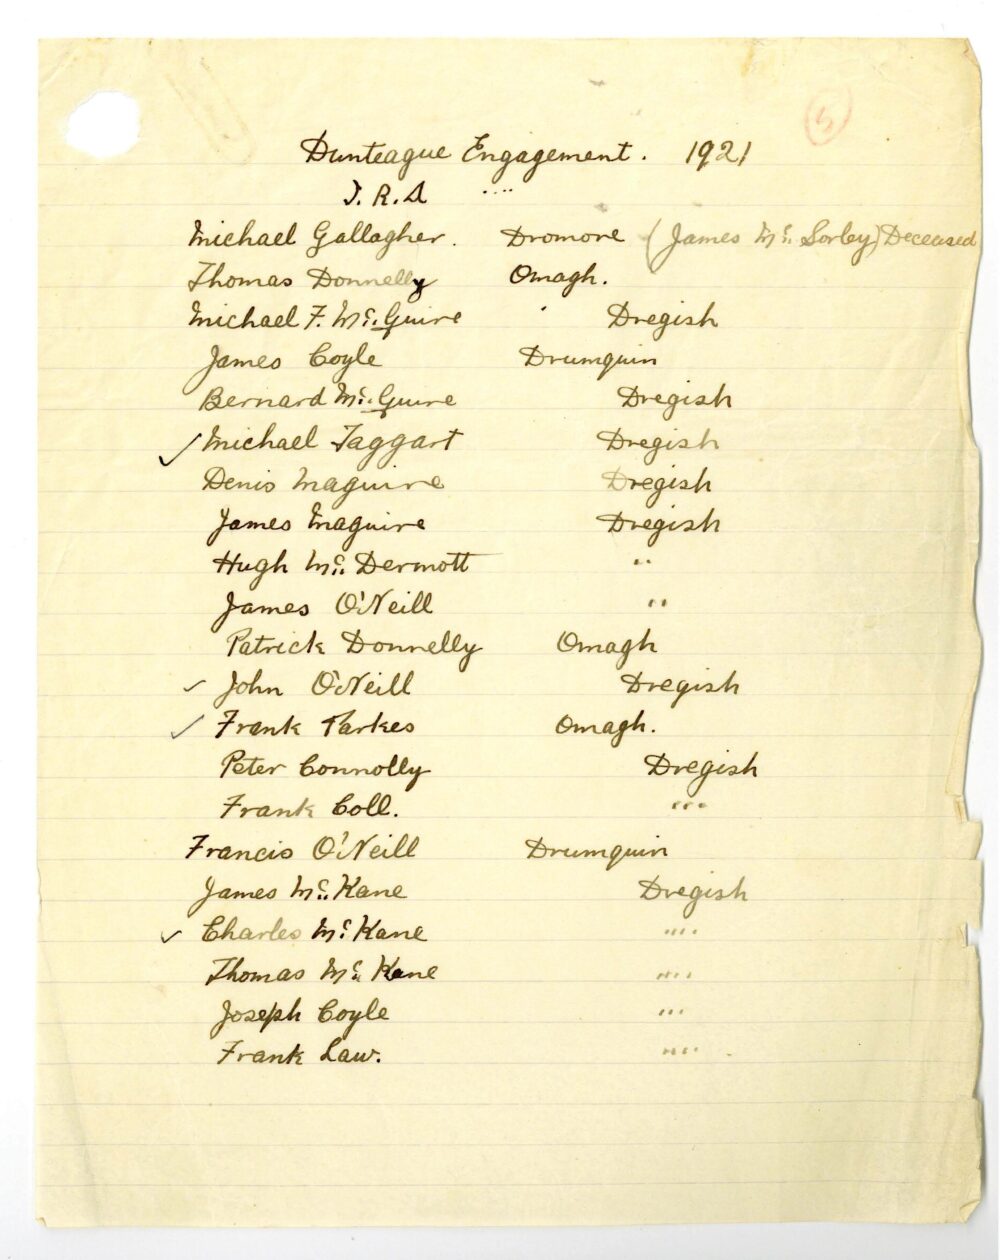 5
Dunteague Engagement. 1921
I.R.A ""
Michael Gallagher. Dromore (James Mc. Sorley) Deceased
Thomas Donnelly Omagh.
Michael F. Mc. Guire Dregish
James Coyle Drumquin
Bernard Mc. Guire Dregish
✓ Michael Taggart Dregish
Denis Maguire Dregish
James Maguire Dregish
Hugh Mc. Dermott "
James O'Neill "
Patrick Donnelly Omagh
✓ John O'Neill Dregish
✓ Frank Parkes Omagh.
Peter Connolly Dregish
Frank Coll. "
Francis O'Neill Drumquin
James Mc. Kane Dregish
✓ Charles Mc. Kane "
Thomas Mc. Kane "
Joseph Coyle "
Frank Law. "